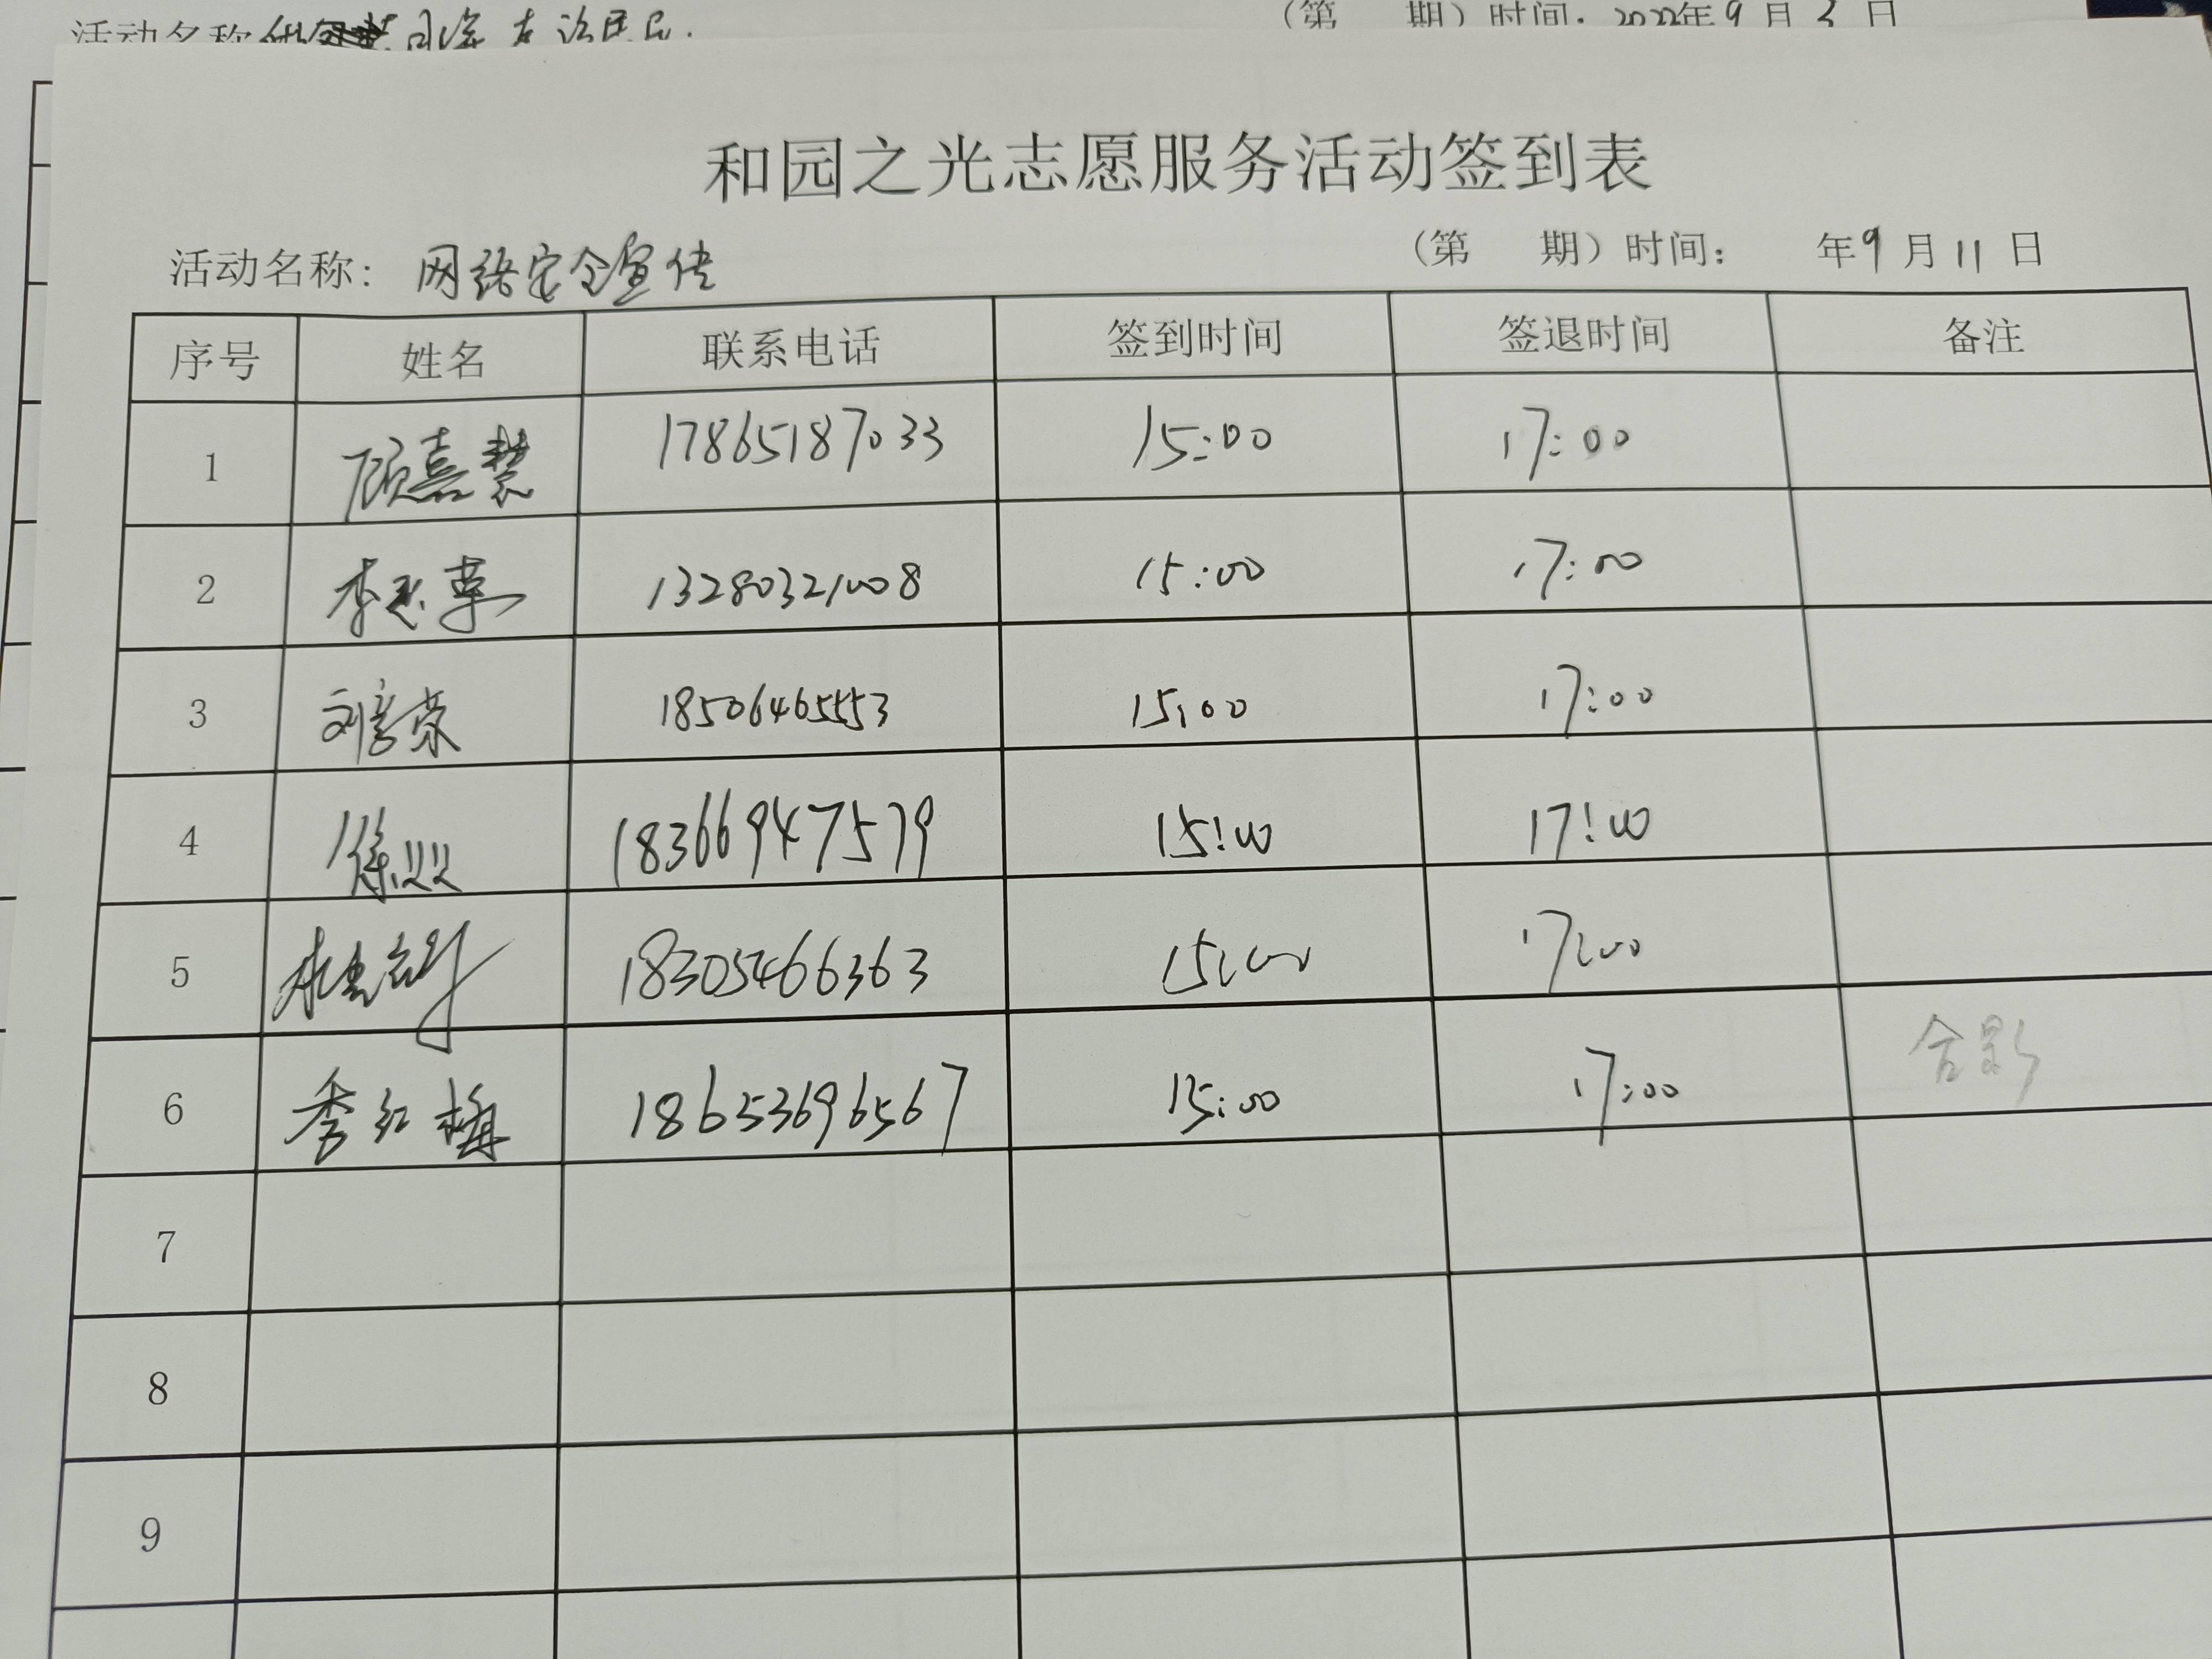 活动名称
(第 期) 时间: 2022年9月3日
和园之光志愿服务活动签到表
活动名称: 网络安全宣传 (第 期) 时间: 年9月11日
序号 姓名 联系电话 签到时间 签退时间 备注
1 顾嘉慧 17865187033 15:00 17:00
2 13280321008 15:00 17:00
3 18506465553 15:00 17:00
4 徐 18366947579 15:00 17:00
5 18305466363 15:00 17:00
6 季红梅 18653696567 15:00 17:00 合影
7
8
9